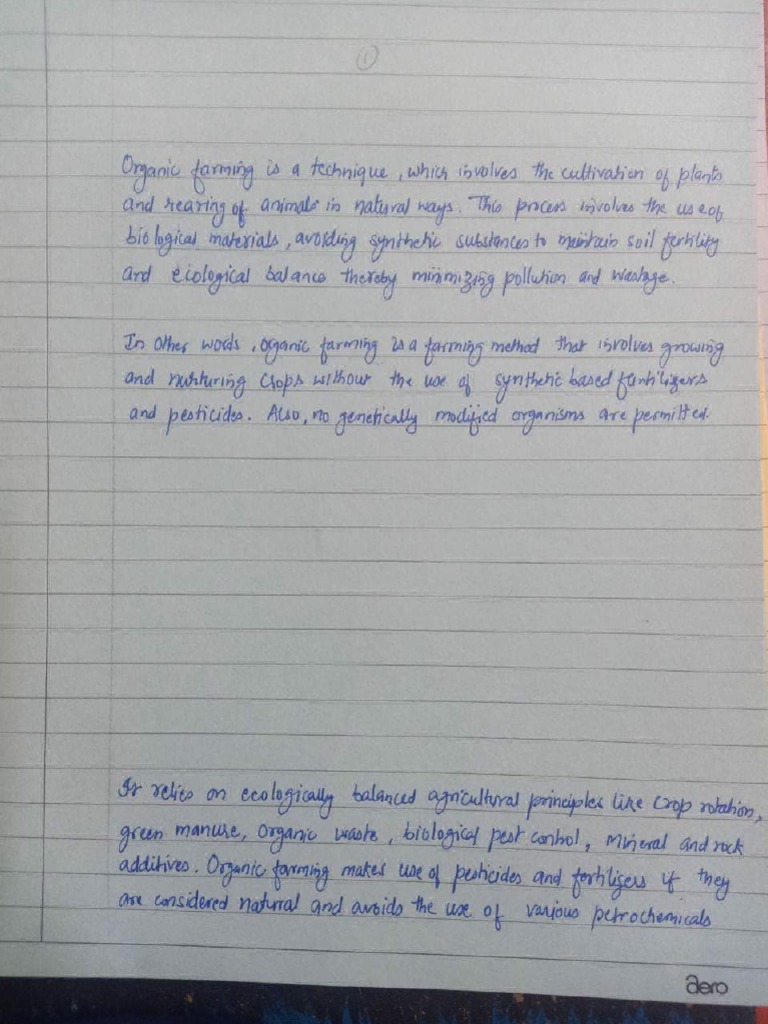 1
Organic farming is a technique, which involves the cultivation of plants
and rearing of animals in natural ways. This process involves the use of
biological materials, avoiding synthetic substances to maintain soil fertility
and ecological balance thereby minimizing pollution and wastage.
In other words, organic farming is a farming method that involves growing
and nurturing crops without the use of synthetic based fertilizers
and pesticides. Also, no genetically modified organisms are permitted.
It relies on ecologically balanced agricultural principles like crop rotation,
green manure, organic waste, biological pest control, mineral and rock
additives. Organic farming makes use of pesticides and fertilizers if they
are considered natural and avoids the use of various petrochemicals
aero